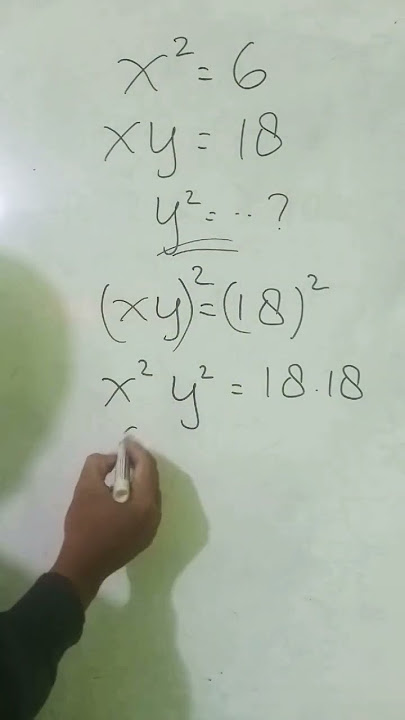 x² = 6
xy = 18
y² = ...?
(xy)² = (18)²
x² y² = 18.18